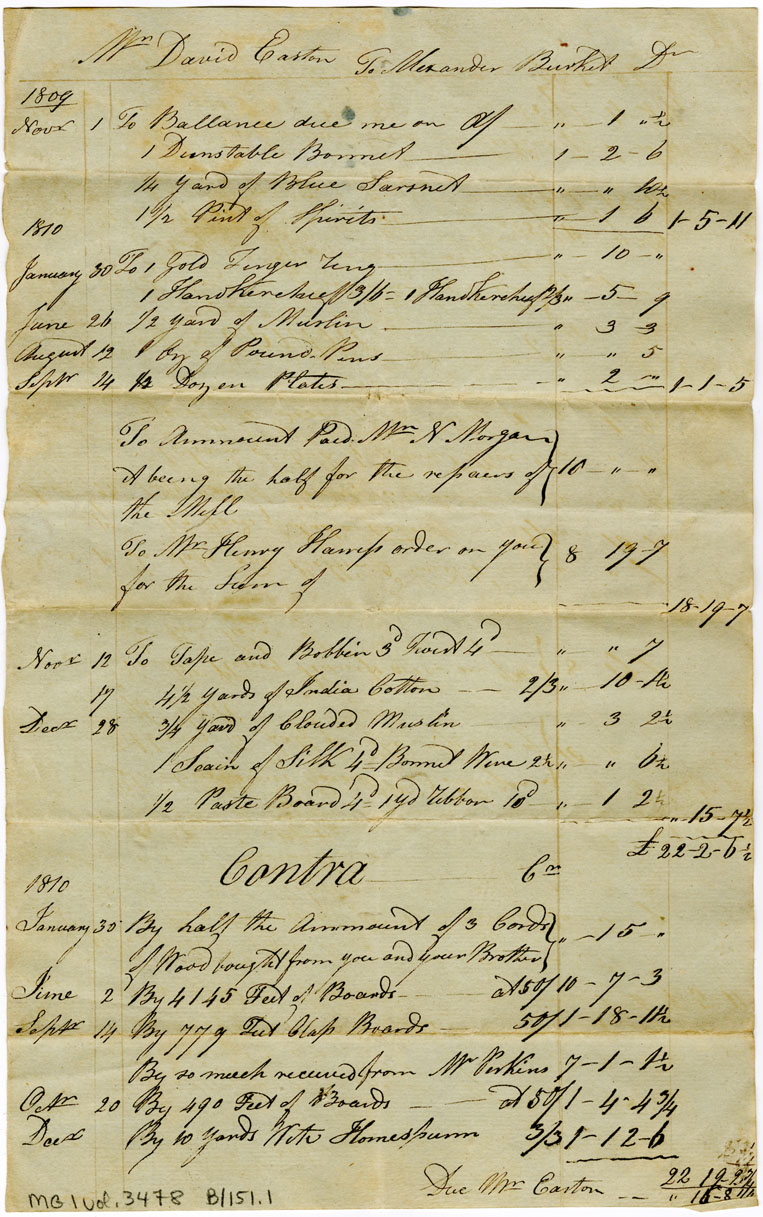 Mr David Easton To Alexander Burket Dr
1809
Novr 1 To Ballance due me on A/ — " — 1 " ½
1 Dunstable Bonnet — 1 - 2 - 6
¼ Yard of Blue Sarsnet — " — " 10½
1½ Pint of Spirits — " 1 6 1-5-11
1810
January 30 To 1 Gold Finger ring — " — 10 — "
1 Handkerchieff 3/6 - 1 Handkerchief 2/3 " - 5 - 9
June 26 ½ Yard of Muslin — " 3 - 3
August 12 1 of Pound Pins — " " 5
Septr 14 ½ Dozen Plates — " 2 — " 1-1-5
To Ammount Paid Mr N Morgan
it being the half for the repairs of } 10 — " — "
the Mill
To Mr Henry order on you } 8 19-7
for the Sum of
18-19-7
Novr 12 To Tape and Bobbin 3d Twist 4d — " " 7
17 4½ Yards of India Cotton — 2/3 " — 10 - 1½
Decr 28 ¾ Yard of Clouded Muslin — " 3 2½
1 Scain of Silk 4d Bonnet Wire 2½ " — " 6½
½ Paste Board 4d 1 yd ribbon 10d — " — 1 2½
" - 15 - 7½
£ 22-2-6½
1810 Contra Cr
January 30 By half the Ammount of 3 Cords } " — 15 — "
of Wood bought from you and your Brother
June 2 By 4145 Feet of Boards — at 50/ 10 - 7 - 3
Septr 14 By 779 Feet Clap Boards — 50/ 1 - 18 - 1½
By so much received from Mr Perkins 7 - 1 - 1½
Octr 20 By 490 Feet of Boards — at 50/ 1 - 4 - 4¾
Decr By 10 Yards Homespunn 3/3 1 - 12 - 6
22 19-2¾
Due Mr Easton — " 16-8
MG 1 vol. 3478 B/151.1